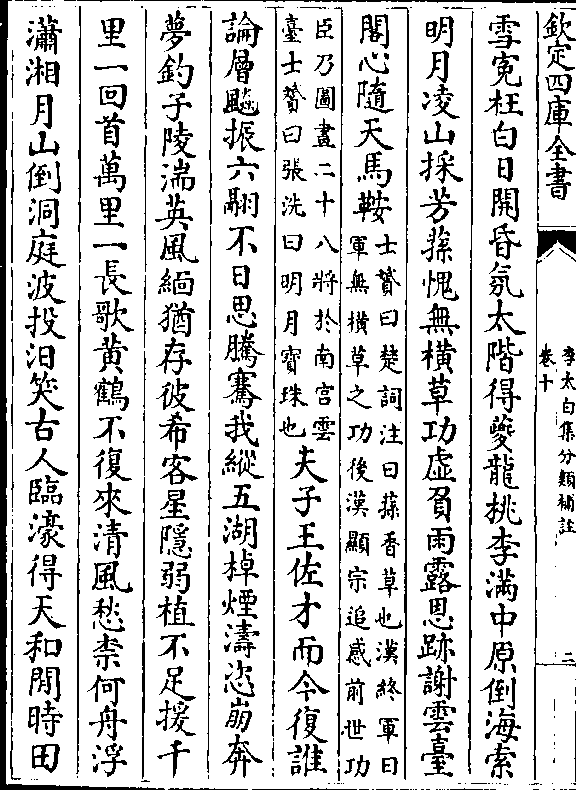 欽定四庫全書
李太白集分類補註
卷十
二
雪寃枉白日開昏氛太階得夔龍桃李滿中原倒海索
明月凌山採芳蓀愧無橫草功虛負雨露恩跡謝雲臺
閣心隨天馬鞍
士贇曰楚詞注曰蓀香草也漢終軍曰
軍無橫草之功後漢顯宗追感前世功
臣乃圖畫二十八將於南宮雲
臺士贇曰張洗曰明月寶珠也
夫子王佐才而今復誰
論層飈振六翮不日思騰騫我縱五湖棹煙濤恣崩奔
夢釣子陵湍英風緬猶存彼希客星隱弱植不足援千
里一回首萬里一長歌黃鶴不復來清風愁柰何舟浮
瀟湘月山倒洞庭波投汨笑古人臨濠得天和閒時田